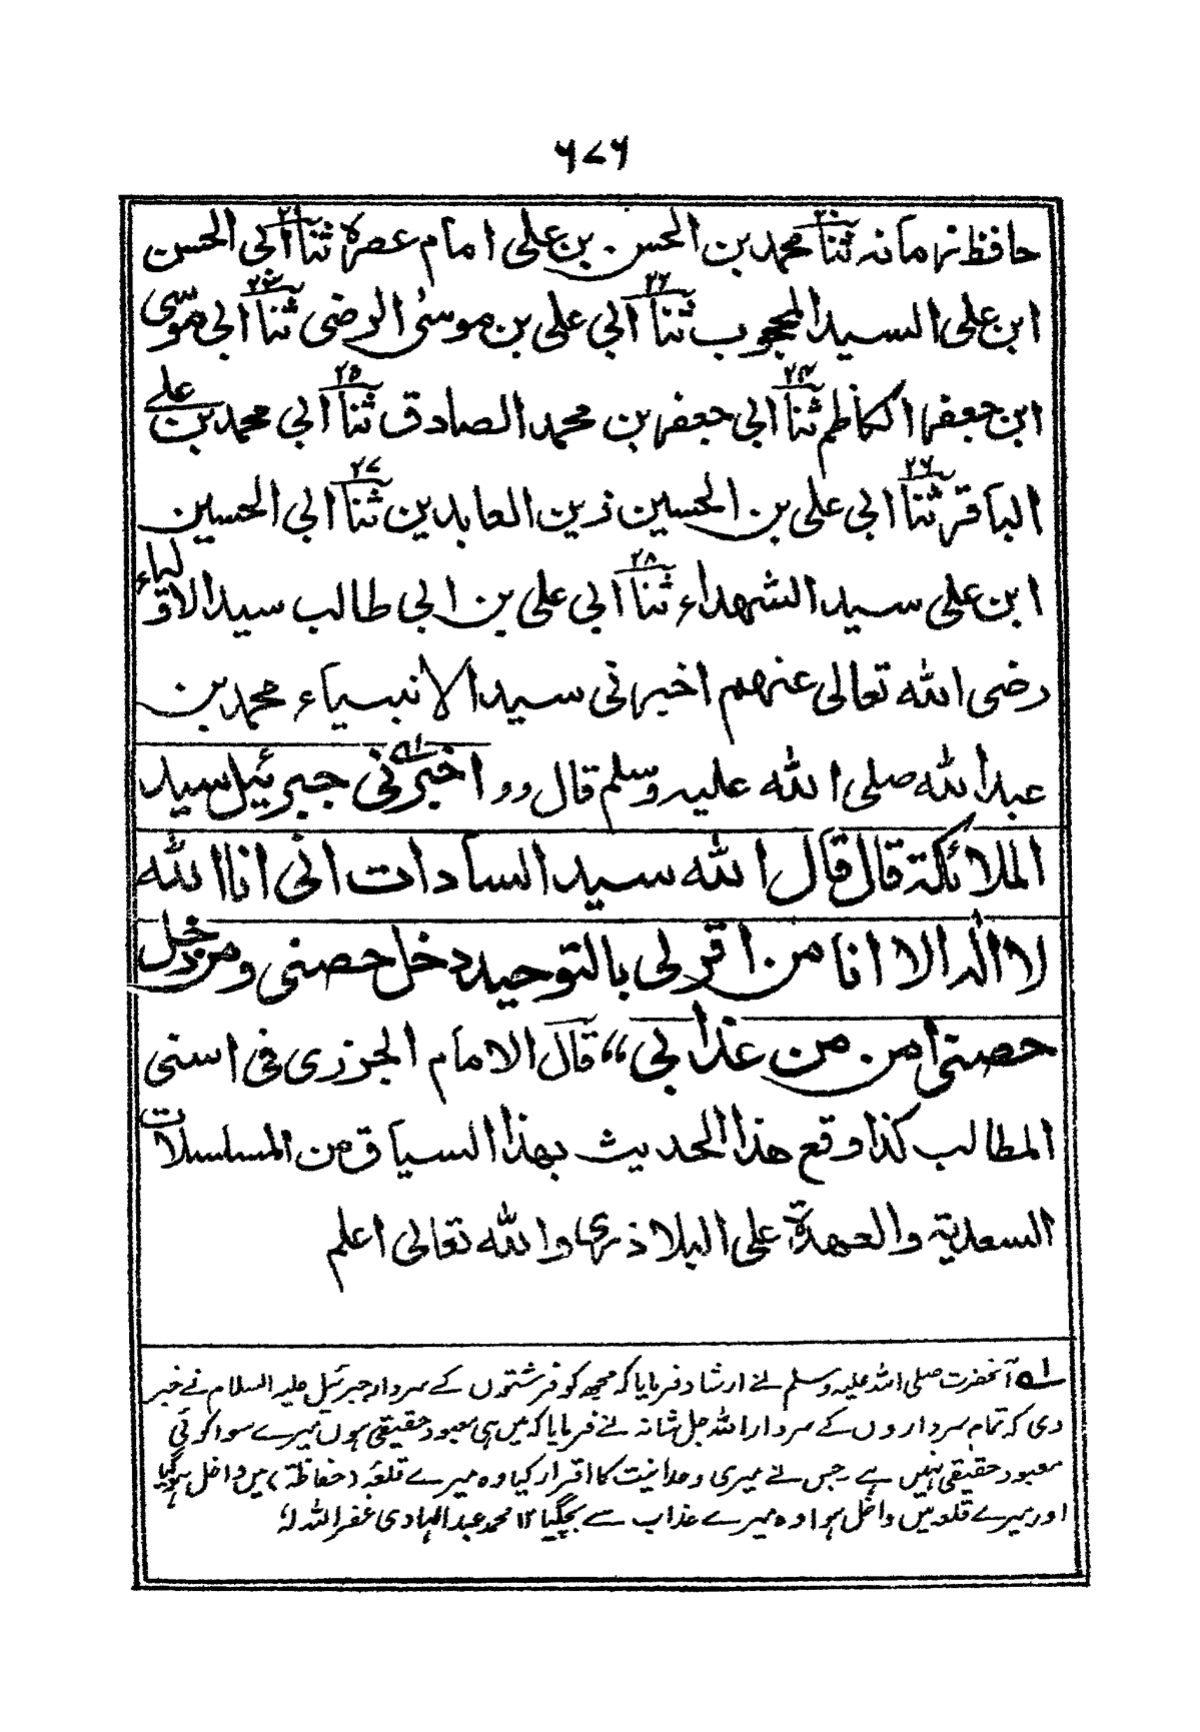 ۶۷۶
حافظ زمانہ ثنا۲۰ محمد بن الحسن بن علی امام عصرہ ثنا۲۱ ابی الحسن
ابن علی السید المحجوب ثنا۲۲ ابی علی بن موسیٰ الرضی ثنا۲۳ ابی موسی
ابن جعفر الکاظم ثنا۲۴ ابی جعفر بن محمد الصادق ثنا۲۵ ابی محمد بن علی
الباقر ثنا۲۶ ابی علی بن الحسین زین العابدین ثنا۲۷ ابی الحسین
ابن علی سید الشهداء ثنا۲۸ ابی علی بن ابی طالب سید الاولیاء
رضی الله تعالی عنهم اخبرنی سید الانبیاء محمد بن
عبد الله صلی الله علیه وسلم قال ,, اخبرنی۱ جبرئیل سید
الملائکة قال قال الله سید السادات انی انا الله
لا اله الا انا من اقر لی بالتوحید دخل حصنی ومن دخل
حصنی امن من عذابی ،، قال الامام الجزری فی اسنی
المطالب کذا وقع هذا الحدیث بهذا السیاق من المسلسلات
السعدیة والعهدة علی البلاذری والله تعالی اعلم
۱ آنحضرت صلی اللہ علیہ وسلم نے ارشاد فرمایا کہ مجھ کو فرشتوں کے سردار جبرئیل علیہ السلام نے خبر
دی کہ تمام سرداروں کے سردار اللہ جل شانہ نے فرمایا کہ میں ہی معبود حقیقی ہوں میرے سوا کوئی
معبود حقیقی نہیں ہے ۔ جس نے میری وحدانیت کا اقرار کیا وہ میرے قلعہ (حفاظت) میں داخل ہوگیا
اور میرے قلعہ میں داخل ہوا وہ میرے عذاب سے بچ گیا ۱۲ محمد عبد الہادی غفر اللہ لہٗ